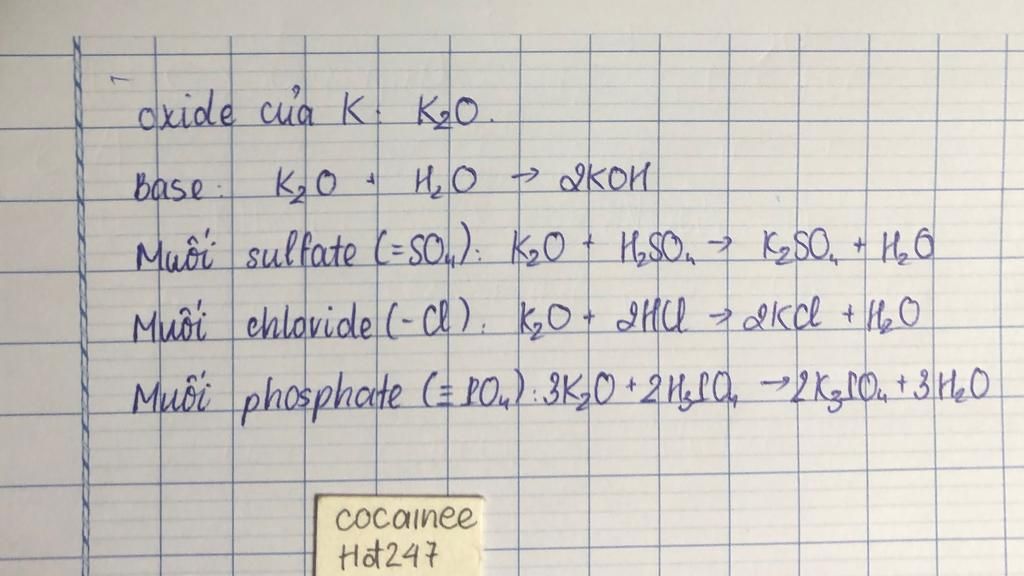 oxide của K: K₂O.
Base: K₂O + H₂O → 2KOH
Muối sulfate (=SO₄): K₂O + H₂SO₄ → K₂SO₄ + H₂O
Muối chloride (-Cl): K₂O + 2HCl → 2KCl + H₂O
Muối phosphate (≡PO₄): 3K₂O + 2H₃PO₄ → 2K₃PO₄ + 3H₂O
cocainee
Hot247